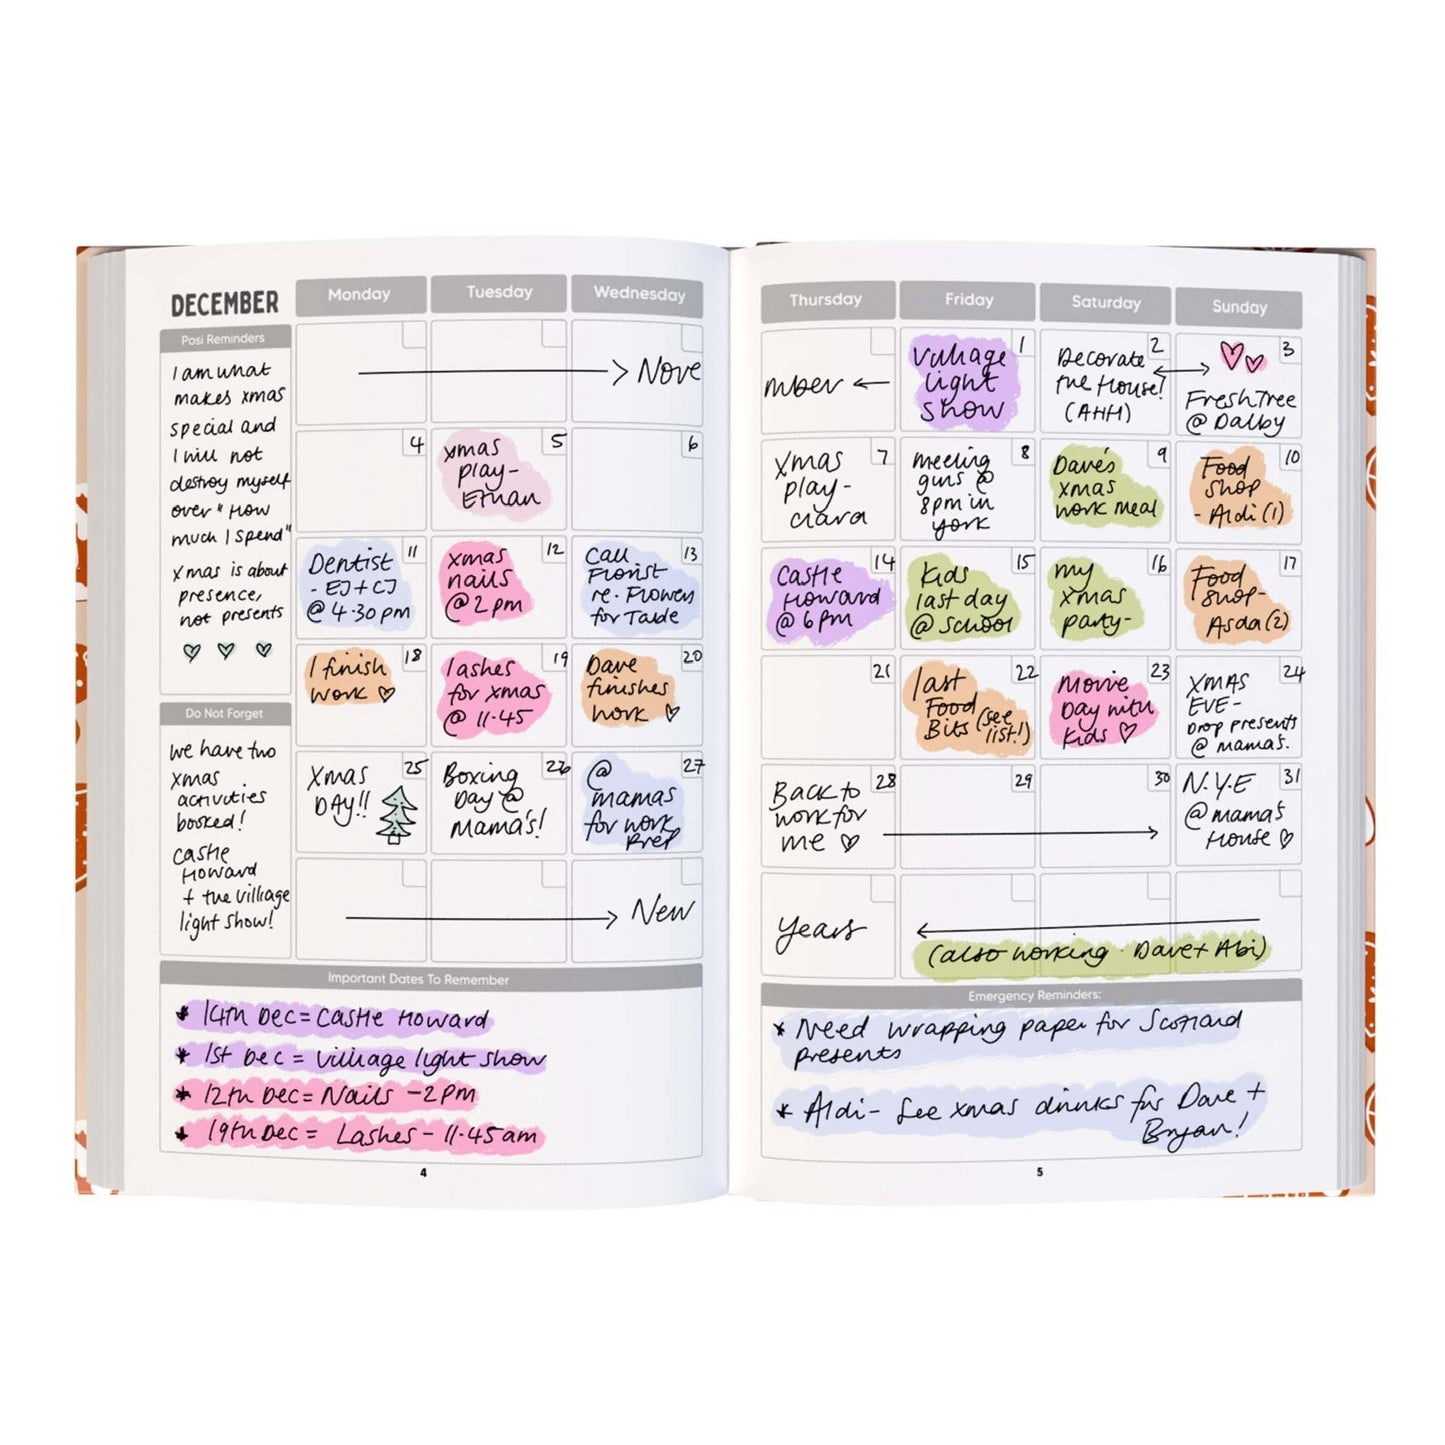 DECEMBER
Posi Reminders
I am what
makes xmas
special and
I will not
destroy myself
over "How
much I spend"
Xmas is about
presence,
not presents
Do Not Forget
we have two
xmas
activities
booked!
Castle
Howard
+ the village
light show!
Monday
Tuesday
Wednesday
Nove
4
5
xmas
play-
Ethan
6
11
Dentist
- EJ + CJ
@ 4.30pm
12
xmas
nails
@ 2pm
13
Call
Florist
re. Flowers
for Table
18
I finish
work
19
lashes
for xmas
@ 11.45
20
Dave
finishes
work
25
Xmas
DAY!!
26
Boxing
Day @
Mama's!
27
@
mamas
for work
prep
New
Important Dates To Remember
* 14th Dec = Castle Howard
* 1st Dec = Village light show
* 12th Dec = Nails - 2pm
* 19th Dec = Lashes - 11.45am
4
Thursday
Friday
Saturday
Sunday
mber
1
Village
light
show
2
Decorate
the House!
(AHH)
3
Fresh Tree
@ Dalby
7
Xmas
play-
Clara
8
meeting
girls @
8pm in
york
9
Dave's
xmas
work meal
10
Food
shop
- Aldi (1)
14
Castle
Howard
@ 6pm
15
Kids
last day
@ School
16
my
xmas
party-
17
Food
shop-
Asda (2)
21
22
last
Food
Bits (see
list!)
23
Movie
Day with
Kids
24
XMAS
EVE-
Drop presents
@ mama's.
28
Back to
work for
me
29
30
31
N.Y.E
@ mama's
House
Years
(also working . Dave + Abi)
Emergency Reminders:
* Need wrapping paper for Scotland
presents
* Aldi - See xmas drinks for Dave +
Bryan!
5